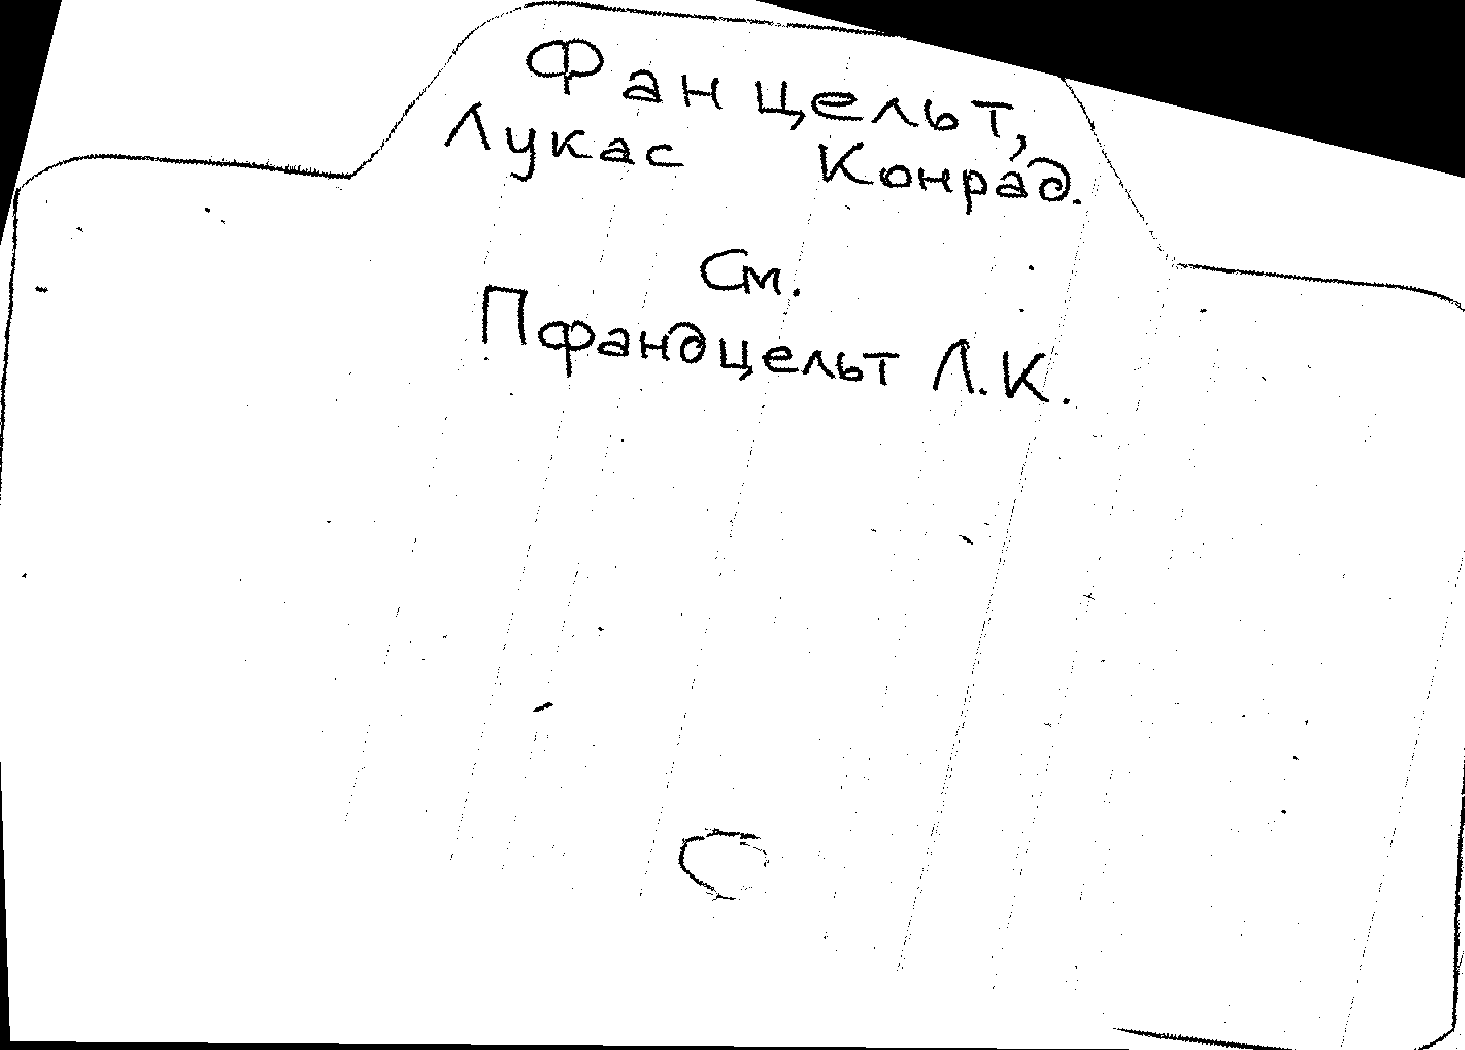 Фанцельт,
Лукас Конрад.
См.
Пфандцельт Л.К.